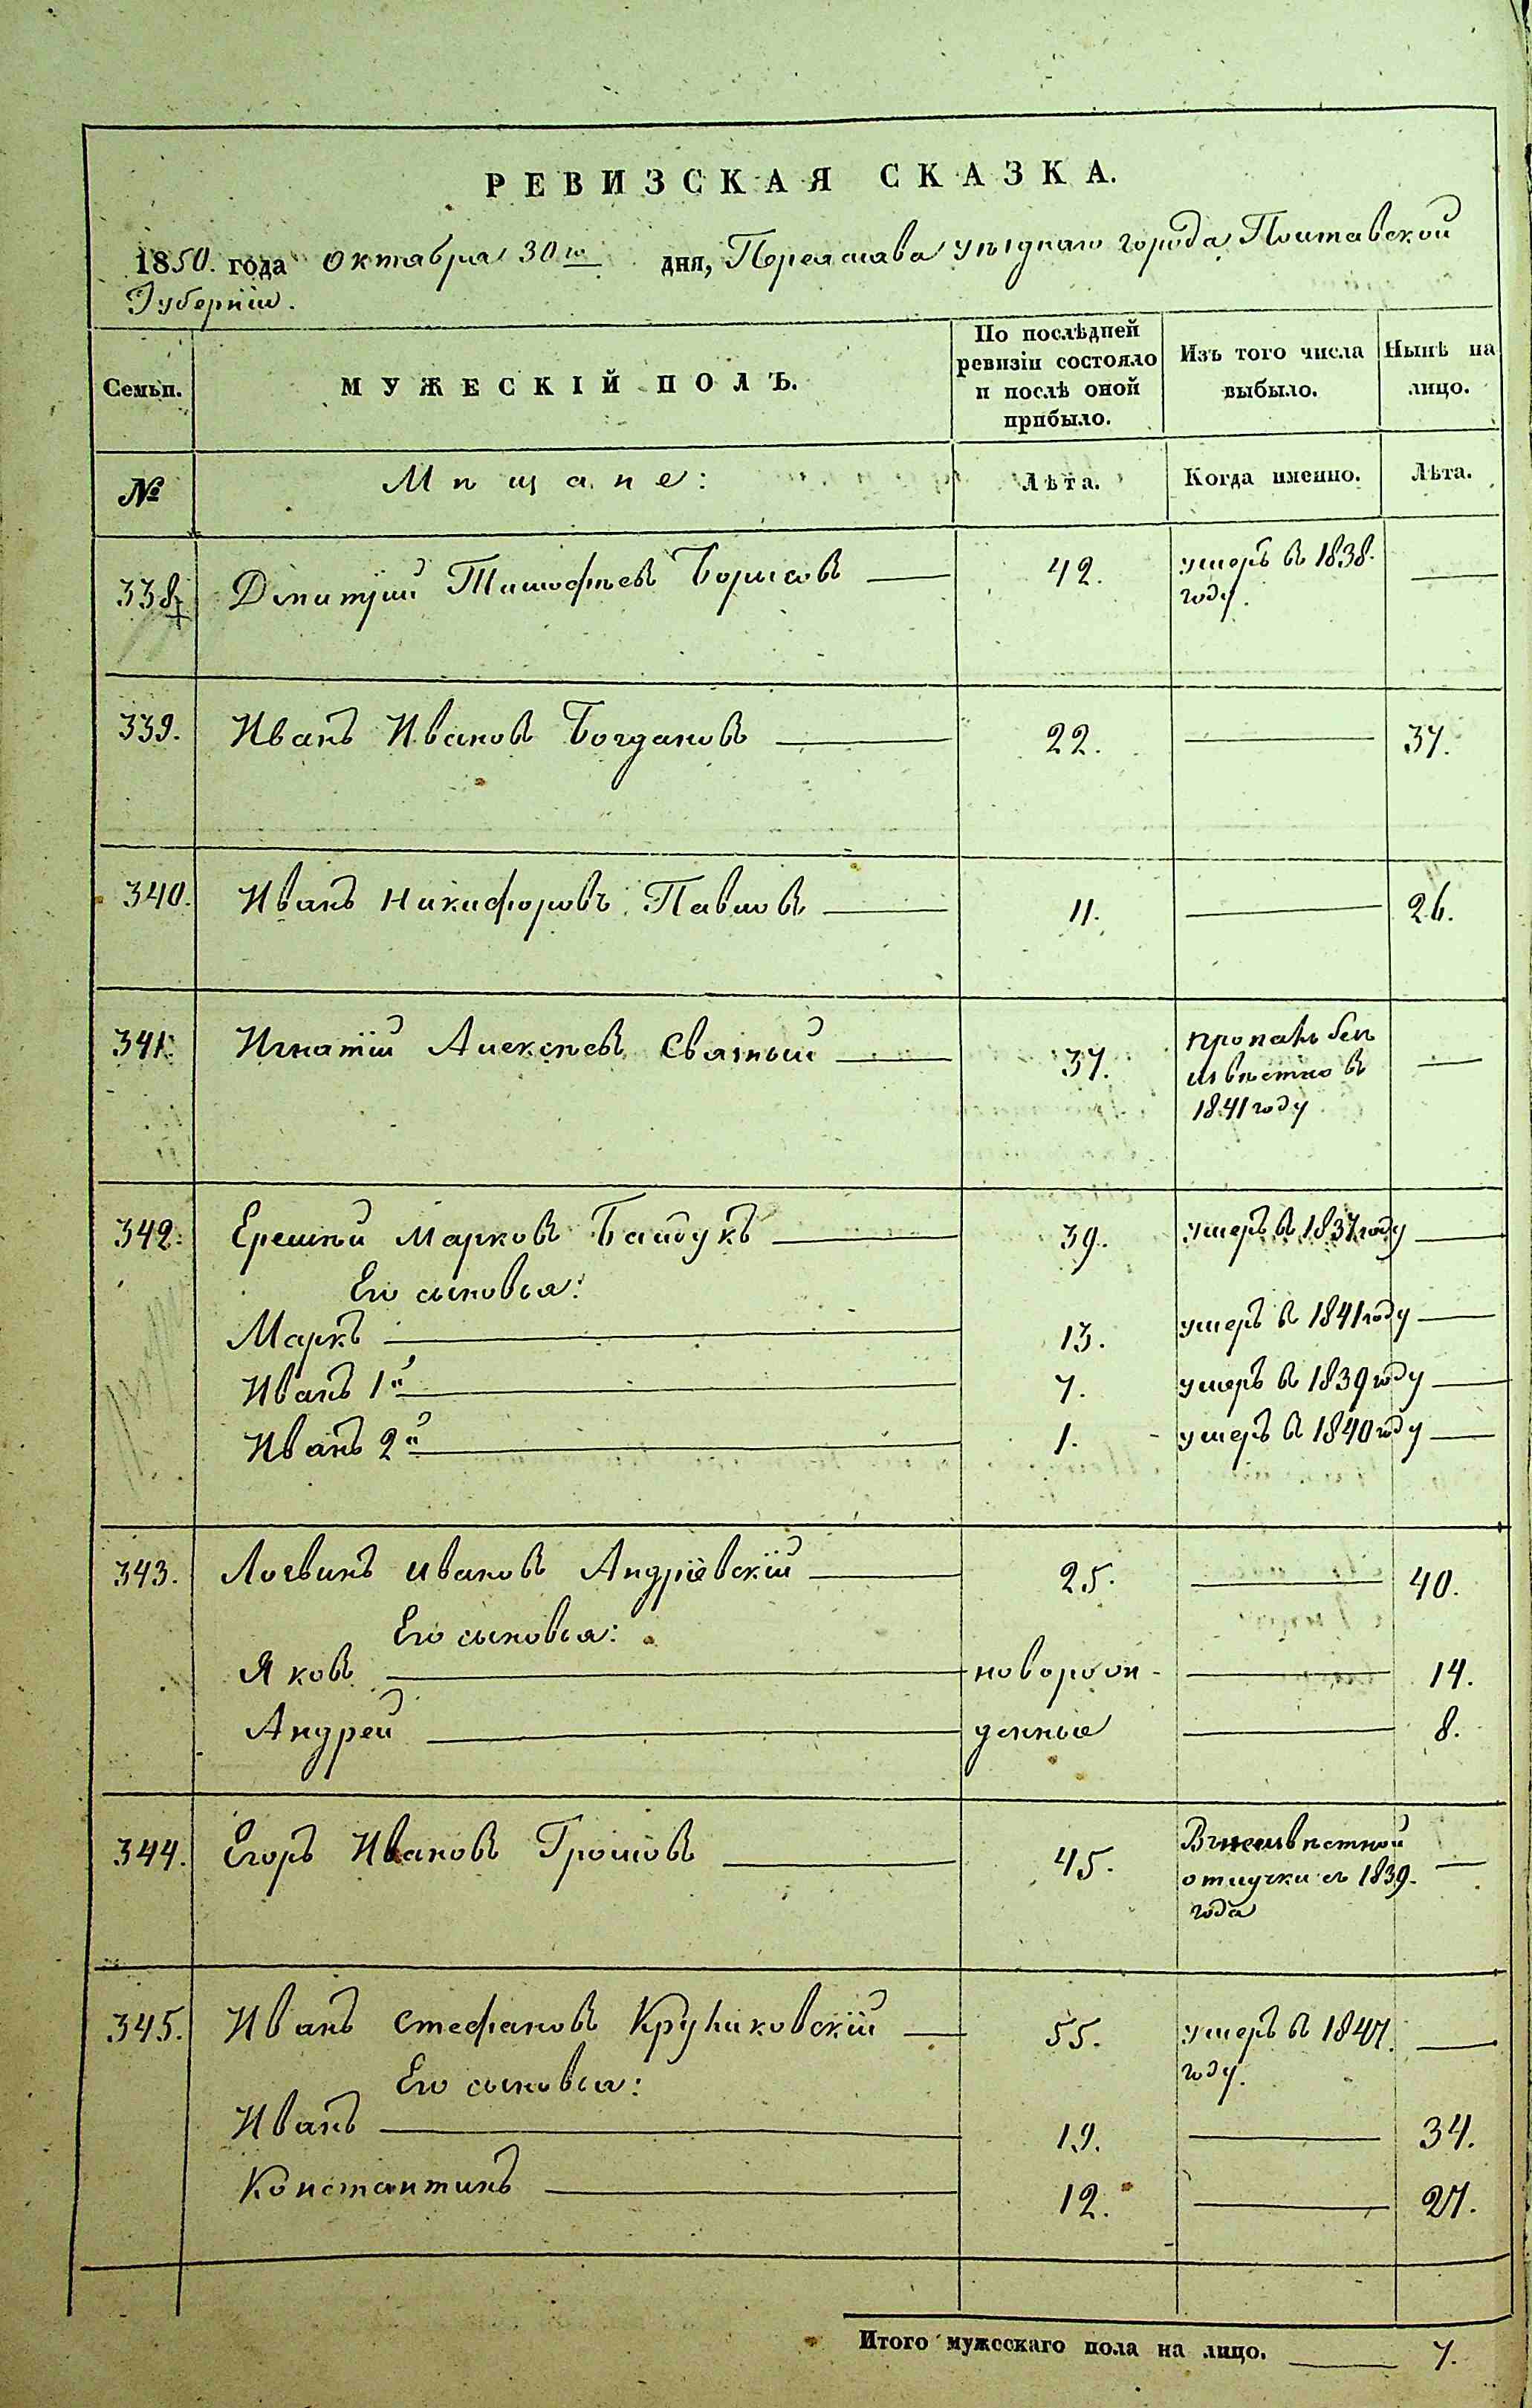 РЕВИЗСКАЯ СКАЗКА.
1850. года октября 30го дня, Переяслава уѣзднаго города Полтавской
Губерніи.
Семьи. МУЖЕСКІЙ ПОЛЪ. По послѣдней ревизіи состояло и послѣ оной прибыло. Изъ того числа выбыло. Нынѣ на лицо.
№ Мѣщане: Лѣта. Когда именно. Лѣта.
338. Дмитрій Тимофѣевъ Борисовъ — 42. умеръ въ 1838. —
году.
339. Иванъ Ивановъ Богдановъ — 22. — 37.
340. Иванъ Никифоровъ Павловъ — 11. — 26.
341. Игнатій Алексѣевъ Святный — 37. пропалъ безъ —
извѣстно въ
1841 году
342. Еремѣй Марковъ Байдукъ — 39. умеръ въ 1837 году —
Его сыновья:
Маркъ — 13. умеръ въ 1841 году —
Иванъ 1й — 7. умеръ въ 1839 году —
Иванъ 2й — 1. умеръ въ 1840 году —
343. Логвинъ Ивановъ Андріевскій — 25. — 40.
Его сыновья:
Яковъ — новорож- — 14.
Андрей — денные — 8.
344. Егоръ Ивановъ Громовъ — 45. В неизвѣстной —
отлучки съ 1839.
года
345. Иванъ Стефановъ Крупиковскій — 55. умеръ въ 1847. —
году.
Его сыновья:
Иванъ — 19. — 34.
Константинъ — 12. — 27.
Итого мужескаго пола на лицо. — 7.